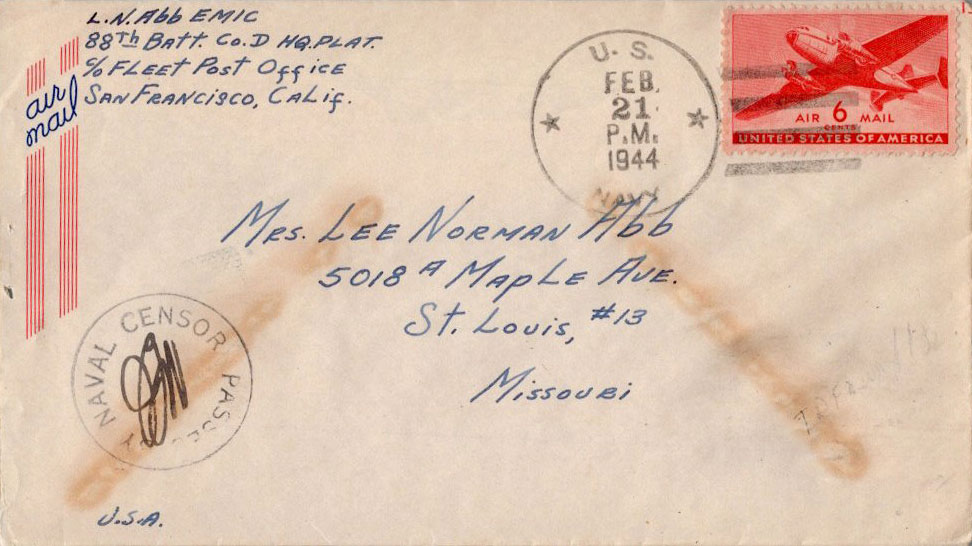 L.N. Abb EMIC
88th Batt. Co. D HQ. PLAT.
c/o FLEET POST OFFICE
SAN FRANCISCO, CALIF.
air
mail
U. S.
FEB.
21
P.M.
1944
NAVY
AIR 6 MAIL
CENTS
UNITED STATES OF AMERICA
MRS. LEE NORMAN Abb
5018 A MAPLE AVE.
ST. LOUIS, #13
MISSOURI
PASSED BY NAVAL CENSOR
U.S.A.